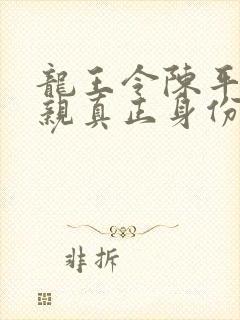 龍王令陳平
親真正身份
非拆